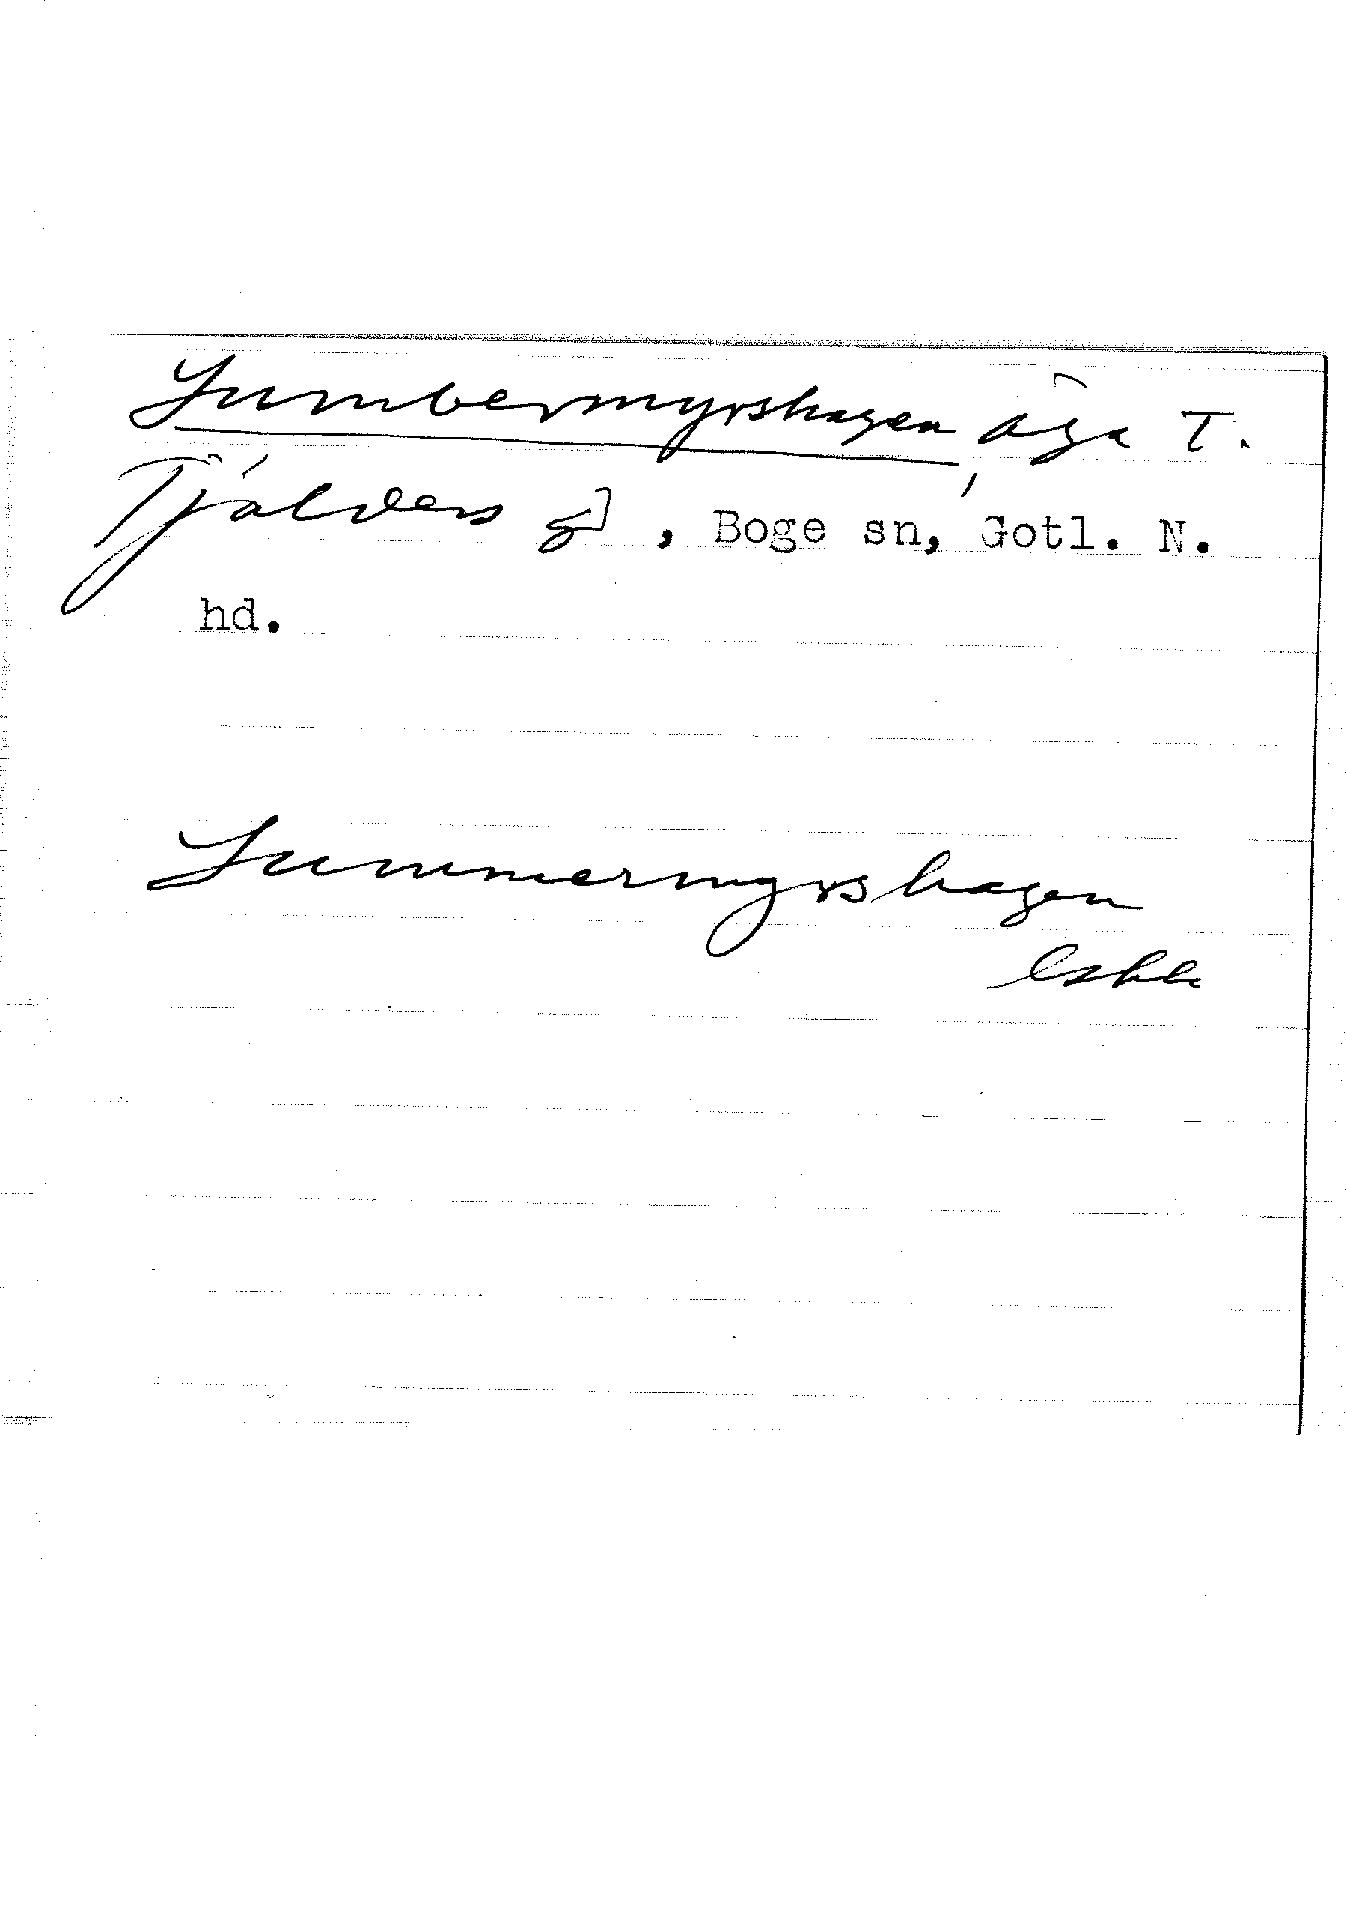 Sumbermyrshagen, äga T.
Tjälders gd, Boge sn, Gotl. N.
hd.
Summermyrshagen